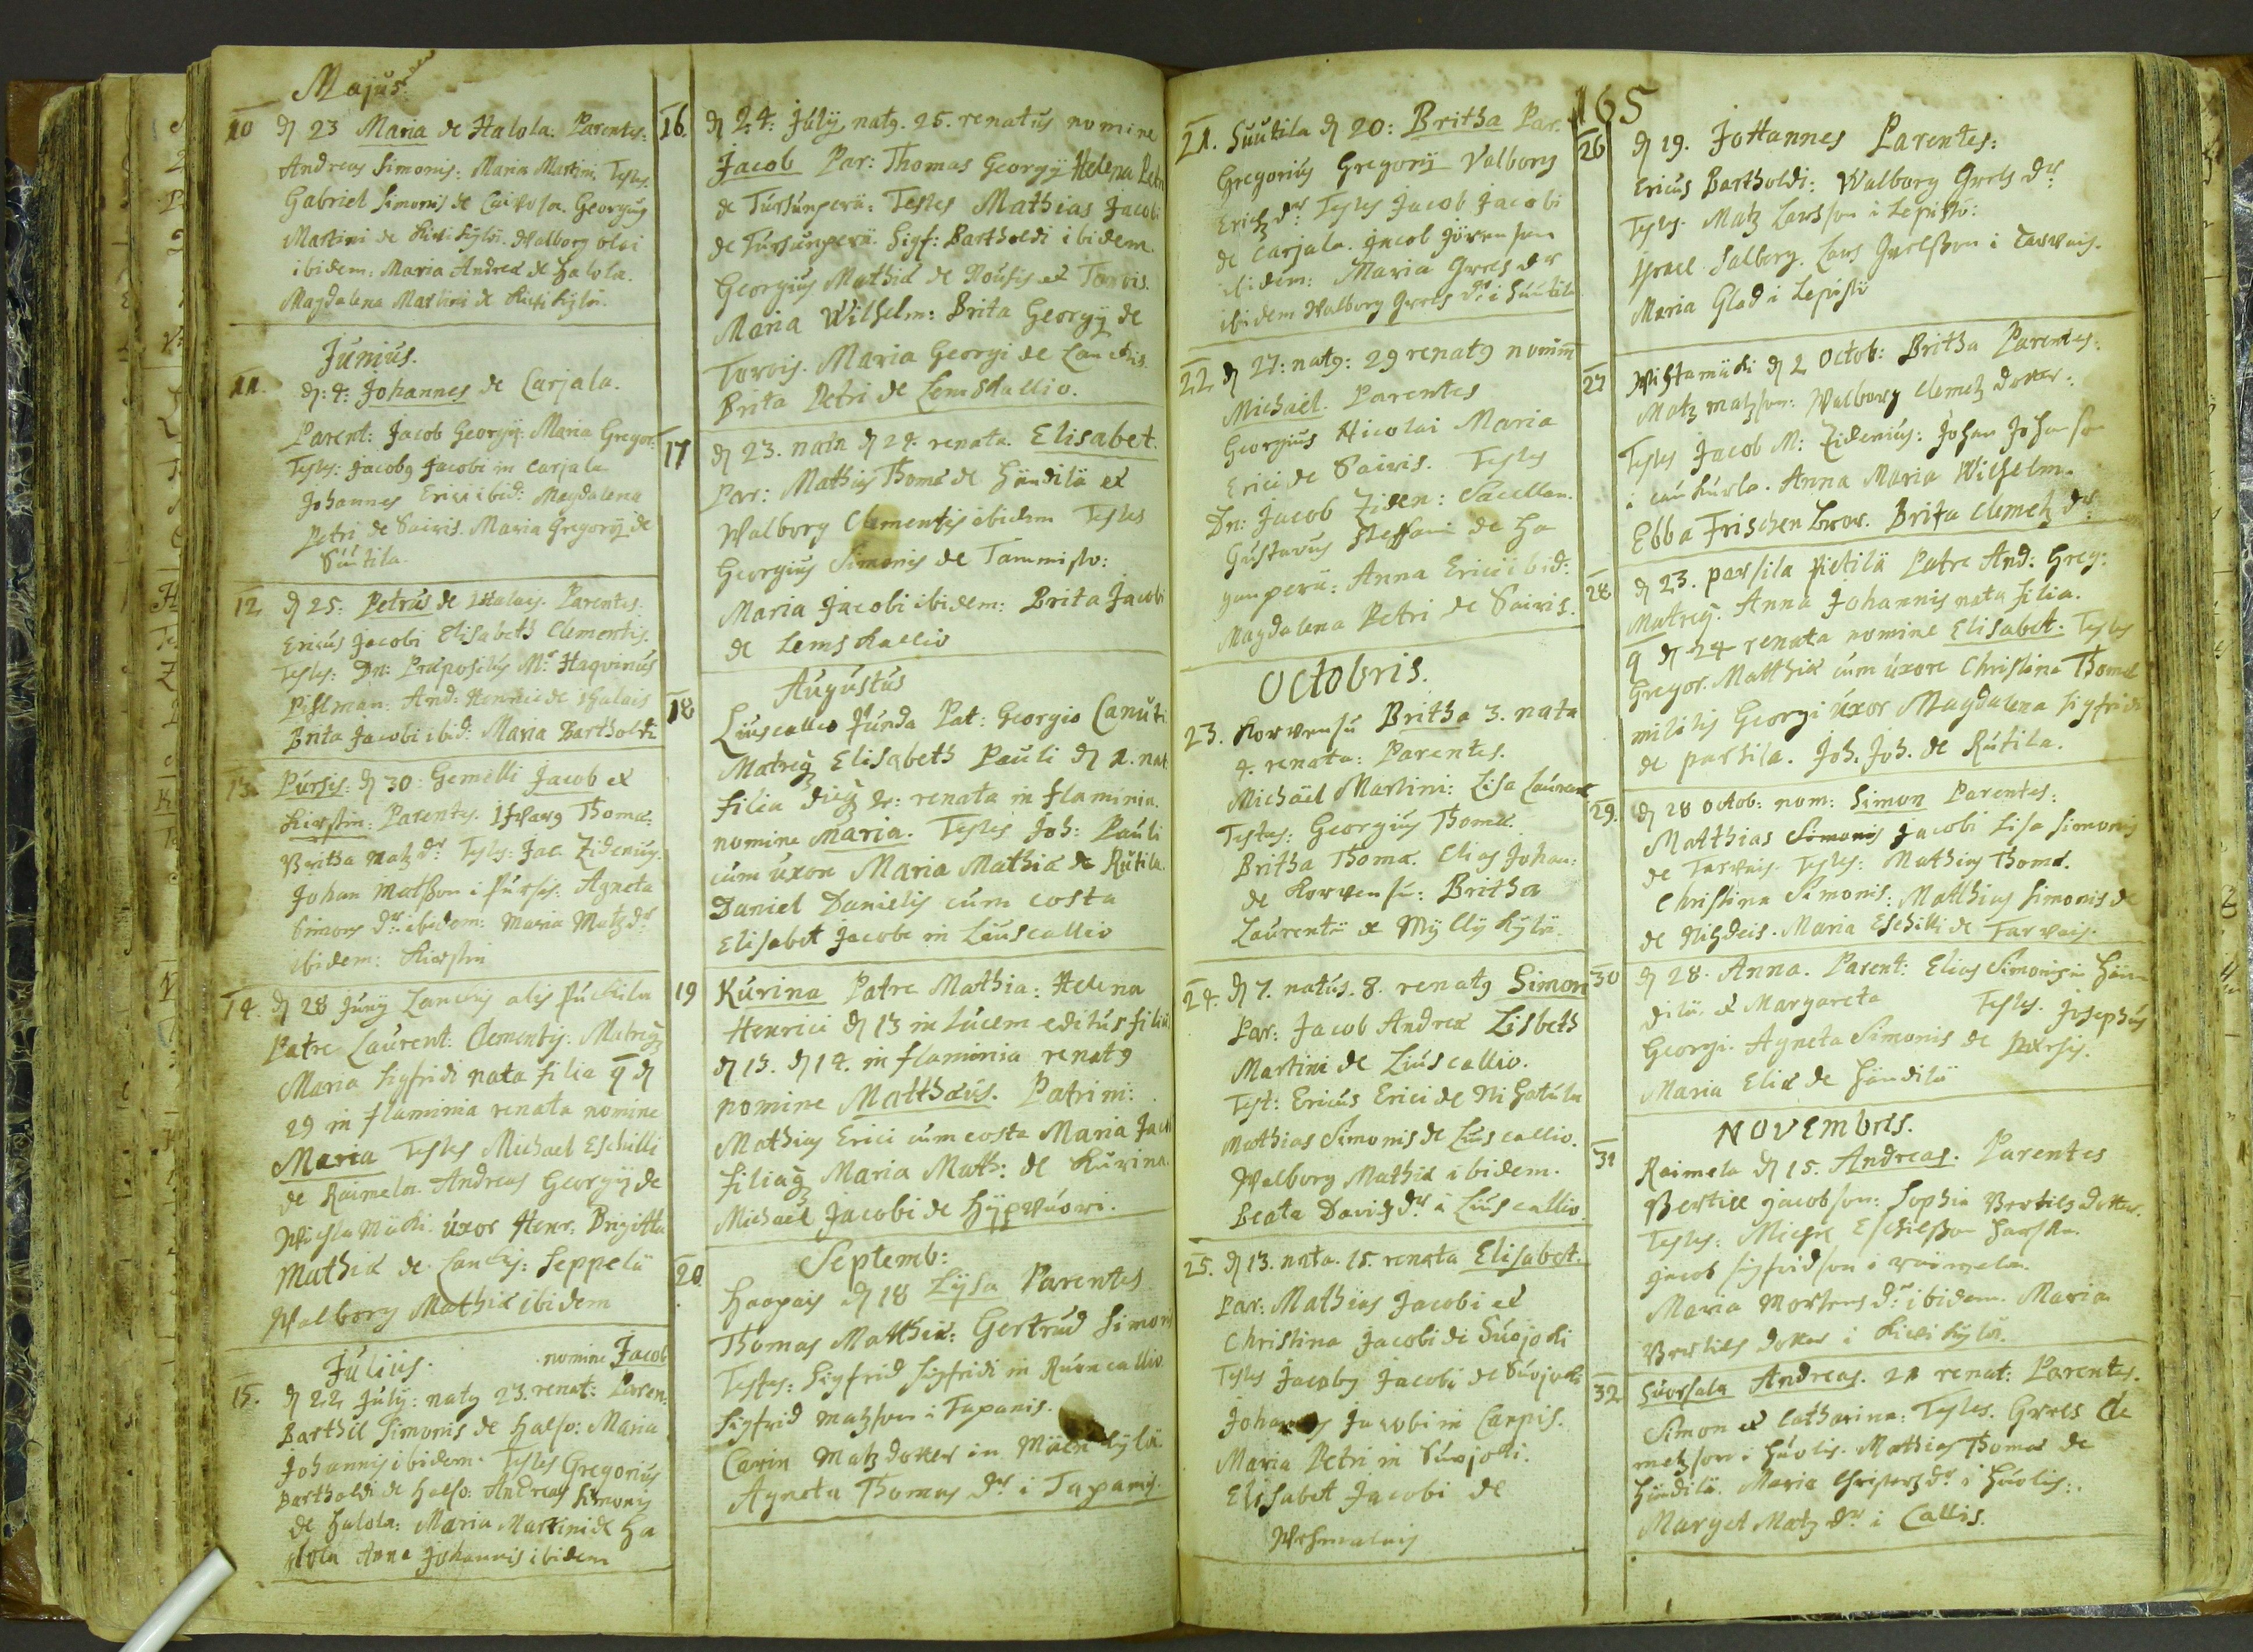 Majus.
10 d 23 Maria de Halola. Parentes:
Andreas Simonis: Maria Martini. Testes.
Gabriel Simonis de Georgius
Martini de Walborg Olai
ibidem: Maria Andreæ de Halola.
Magdalena Martini de
Junius.
11. d: 4: Johannes de Carjala.
Parent: Jacob Georgij. Maria Gregor:
Testes: Jacobg Jacobi in Carjala
Johannes Erici ibid: Magdalena
Petri de Sairis. Maria Gregorij de
Suutila.
12 d 25: Petrus de Parentes.
Ericus Jacobi Elisabeth Clementis.
Testes: Dn: Præpositus Mr. Haqvinus
Pihlman: And: Henrici de
Brita Jacobi ibid: Maria Bartholdi
13. Pursis: d 30: Gemelli Jacob et
Kirstin: Parentes. Thomæ:
Britha Matz dr: Testes: Jac. Zidenius.
Johan Matsson i Pursis. Agneta
Simons dr: ibidem: Maria Matz dr
ibidem: Kirstin
14. d 28 Junij Lanckis alis Puckila
Patre Laurent: Clementis: Matreq
Maria Sigfridi nata filia q d
29 in flaminia renata nomine
Maria Testes Michael Eschilli
de Raimela. Andreas Georgij de
uxor Henr: Brigitta
Mathiæ de Lanckis: Seppelä
Walborg Mathiæ ibidem
Julius. nomine Jacob
15. d 22 July: natg 23. renat: Paren:
Barthil Simonis de Halso: Maria
Johannis ibidem. Testes Gregorius
Bartholdi de Halso. Andreas Simonis
de Halola: Maria Martini de Ha
lola Anna Johannis ibidem
16. d 24: July natg. 25. renatus nomine
Jacob Par: Thomas Georgij Helena Petri
de Tursunperä: Testes Mathias Jacobi
de Tursunperä. Sigf: Bartholdi ibidem.
Georgius Mathiæ de Nousis et Torvis.
Maria Wilhelm: Brita Georgij de
Torvis. Maria Georgi de Lanckis.
Brita Petri de Lemskallio.
17 d 23. nata d 24. renata. Elisabet.
Par: Mathias Thomæ de Händilä et
Walborg Clementis ibidem Testes
Georgius Simonis de Tammisto:
Maria Jacobi ibidem: Brita Jacobi
de Lemskallio
Augustus
18 Liuscallio Junda Pat: Georgio Canuti
Matreq Elisabeth Pauli d 1. nat.
filia dieq 2: renata in flaminia.
nomine Maria. Testes Joh: Pauli
cum uxore Maria Mathiæ de Rutila.
Daniel Danielis cum costa
Elisabet Jacobi in Liuscallio
19 Kurina Patre Mathia: Helena
Henrici d 13 in lucem editus filius
d 13. d 14. in flaminia renatg
nomine Matthæus. Patrini:
Mathias Erici cum costa Maria Jacob
filiaq Maria Math: de Kurina.
Michael Jacobi de Hypvuori.
Septemb:
20 Haapais d 18 Lijsa Parentes
Thomas Matthiæ: Gertrud Simon
Testes: Sigfrid Sigfridi in
Sigfrid Matzson i Tapanis.
Carin Matz dotter in
Agneta Thomas dr i Tapanis.
165
21. Suutila d 20: Britha Par.
Gregorius Gregorij Valborg
Erichz dr. Testes Jacob Jacobi
de Carjala. Jacob Jöransson
ibidem: Maria Grels dr
ibidem Walborg Grels dr i Suutila
22 d 27: natg: 29 renatg nomin
Michael. Parentes
Georgius Nicolai Maria
Erici de Sairis. Testes
Dn: Jacob Ziden: Sacellan.
Gustavus Steffani de Ha
yanperä: Anna Erici ibid:
Magdalena Petri de Sairis.
Octobris.
23. Korvensu Britha 3. nata
4. renata: Parentes.
Michäel Martini: Lisa Laurent
Testes: Georgius Thomæ.
Britha Thomæ. Elias Johan:
de Korvensu: Britha
Laurentii de Myllykylä.
24. d 7. natus. 8. renatg Simon
Par: Jacob Andreæ Lisbeth
Martini de Liuscallio.
Test: Ericus Erici de Nihatula
Mathias Simonis de Liuscallio.
Walborg Mathiæ ibidem.
Beata Davidz dr i Liuscallio.
25. d 13. nata. 15. renata Elisabet.
Par: Mathias Jacobi et
Christina Jacobi di Suojoki
Testes Jacobg Jacobi de Suojoki
Johannes Jacobi in Carpis.
Maria Petri in Suojoki.
Elisabet Jacobi de
26 d 19. Johannes Parentes:
Ericus Bartholdi: Walborg Grels dr:
Testes. Matz Larsson i Lepistö:
Israel Salberg. Lars Grelsson i Tarvais.
Maria Glad i Lepistö
27 d 2 Octob: Britha Parentes:
Matz Matzson: Walborg Clemetz dotter:
Testes Jacob M: Zidenius: Johan Johansson
i Anna Maria Wilhelm.
Ebba Frischen Brita Clemetz dr
28 d 23. parsila Pietilä Patre And: Greg:
Matreq. Anna Johannis nata filia.
q d 24 renata nomine Elisabet. Testes
Gregor. Matthiæ cum uxore Christina Thomæ
militis Georgi uxor Magdalena Sigfridi
de parsila. Joh. Joh. de Rutila.
29. d 28 octob: nom: Simon Parentes:
Matthias Simonis Jacobi Lisa Simonis
de Tarvais. Testes: Mathias Thomæ.
Christina Simonis: Matthias Simonis de
de Maria Eschilli de Tarvais.
30 d 28. Anna. Parent: Elias Simonis in Hän
dilä. et Margareta Testes. Josephus
Georgi. Agneta Simonis de Pursis.
Maria Eliæ de Händilä
Novembris.
31 Raimela d 15. Andreas. Parentes
Bertill Jacobson: Sophia Bertils dotter.
Testes: Michel Eschilsson
Jacob Sigfridson i raimela.
Maria Mortens dr ibidem. Maria
Bertils dotter i
32 Suorsala Andreas. 21 renat: Parentes.
Simon et Catharina: Testes. Grels Cle
metzson i Huolis. Mathias Thomæ de
Händilä. Maria Christers dr i Huolis:
Marget Matz dr i Callis.